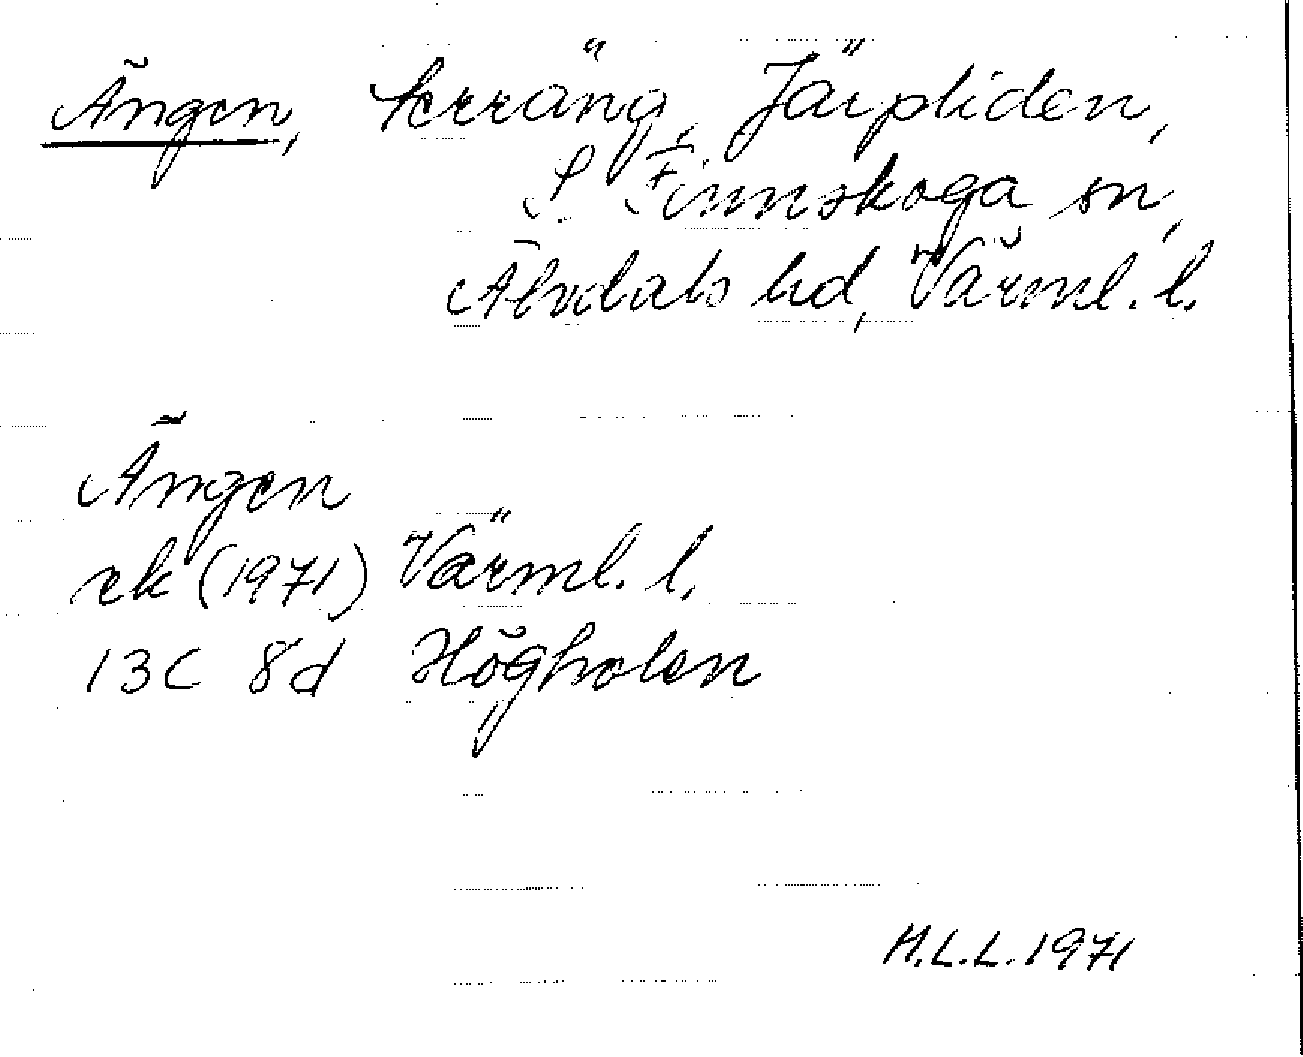 Ängen, terräng, Järpliden,
S. Finnskoga sn,
Älvdals hd, Värml. l.
Ängen
ek (1971) Värml. l.
13C 8d Högholen
H.L.L. 1971